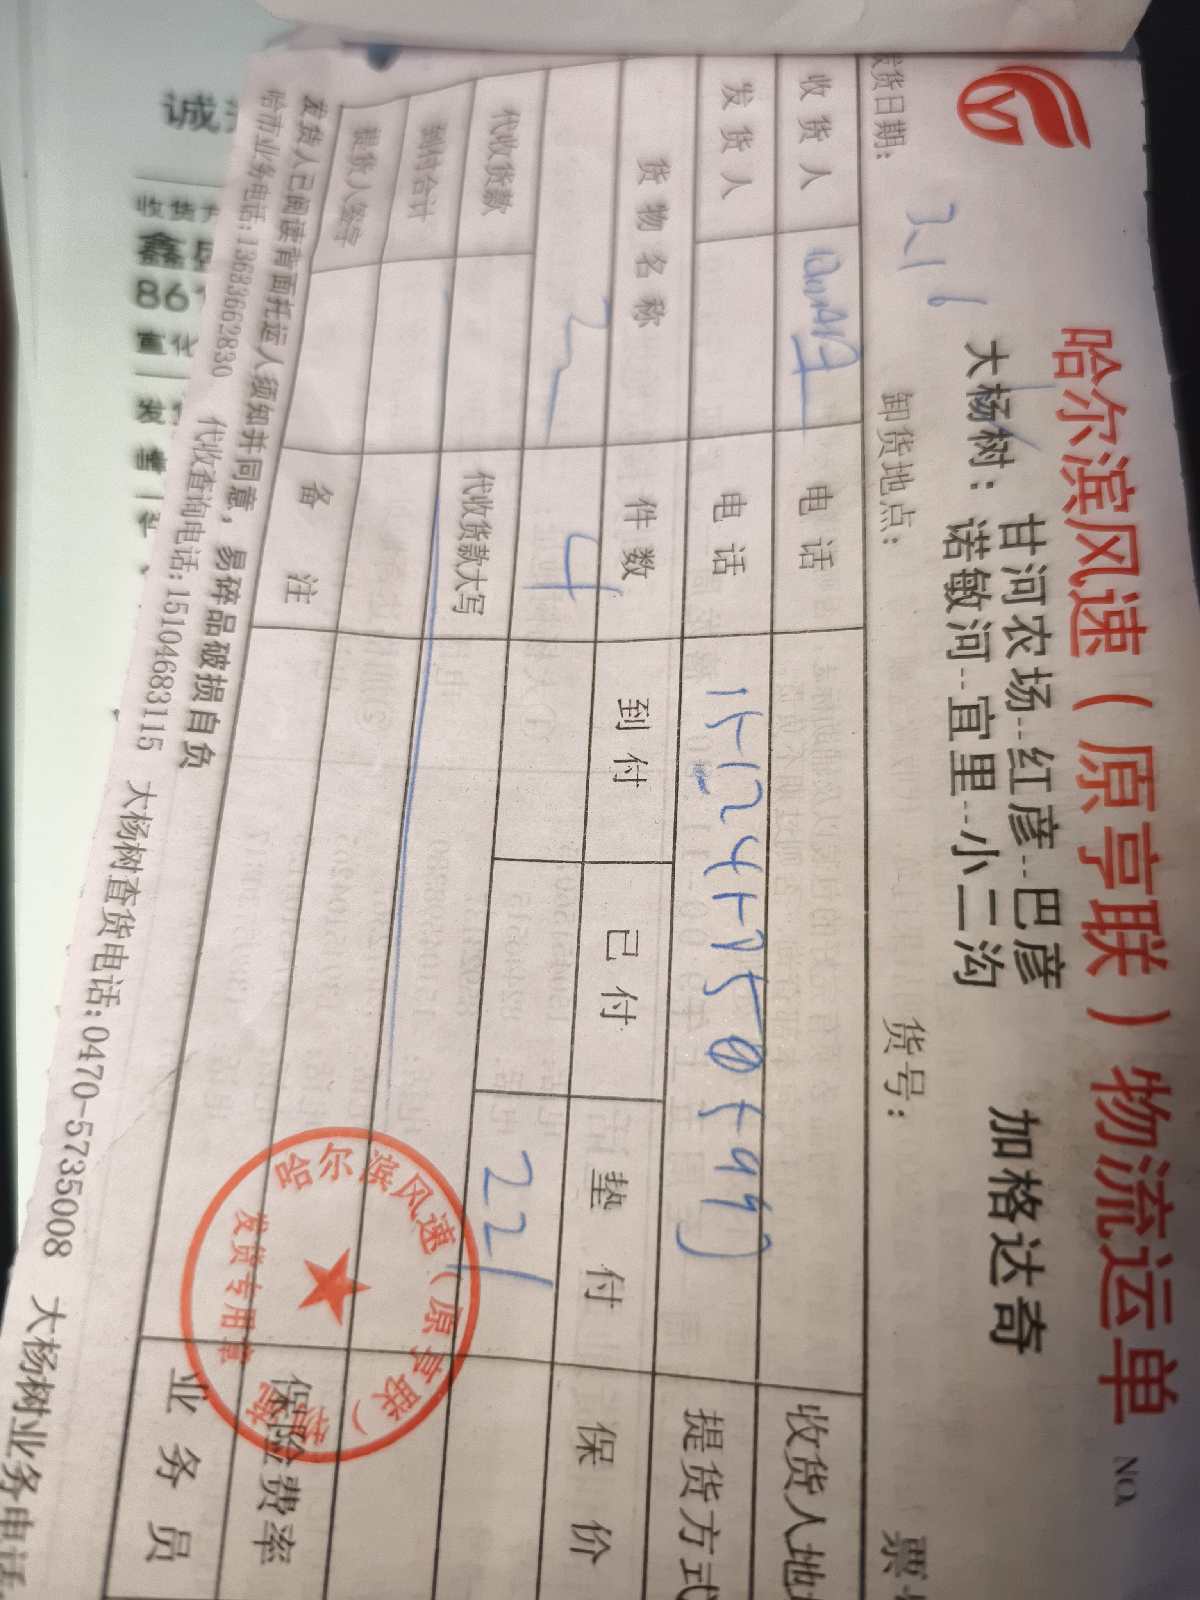 哈尔滨风速（原亨联）物流运单 NO.
大杨树：甘河农场--红彦--巴彦
诺敏河--宜里--小二沟
加格达奇
发货日期: 3.16 卸货地点: 货号: 票
收货人 电话 收货人地
发货人 电话 提货方式
货物名称 件数 到付 已付 垫付 保价
4 221
代收货款 代收货款大写
到付合计
提货人签字 备注 保险费率
业务员
发货人已阅读背面托运人须知并同意，易碎品破损自负
哈市业务电话:13633662830 代收查询电话:15104683115 大杨树查货电话:0470-5735008 大杨树业务电话:
哈尔滨风速（原亨联）物流
发货专用章
诚
收货
鑫
86
宣化
发